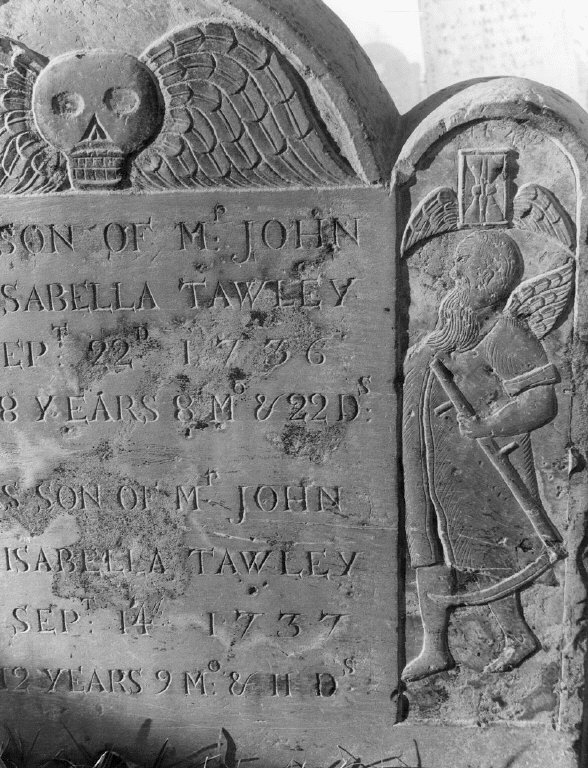 SON OF Mr. JOHN
ISABELLA TAWLEY
SEPT. 22D 1736
8 YEARS 8 Mo & 22 Ds:
SON OF Mr JOHN
ISABELLA TAWLEY
SEPT. 14 1737
12 YEARS 9 Mo. & 11 Ds.